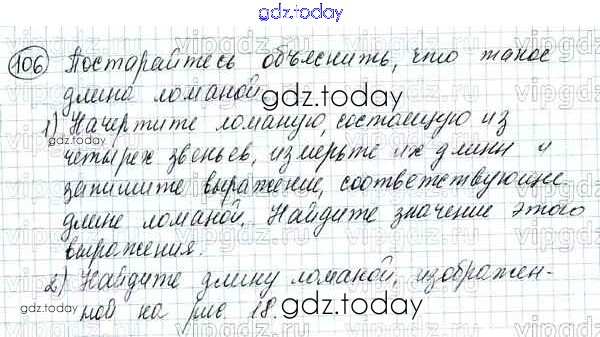 gdz.today
106 Постарайтесь объяснить, что такое
длина ломаной.
gdz.today
1) Начертите ломаную, состоящую из
gdz.today
четырех звеньев, измерьте их длины и
запишите выражение, соответствующее
длине ломаной. Найдите значение этого
выражения.
2) Найдите длину ломаной, изображен-
ной на рис. 18.
gdz.today
gdz.today